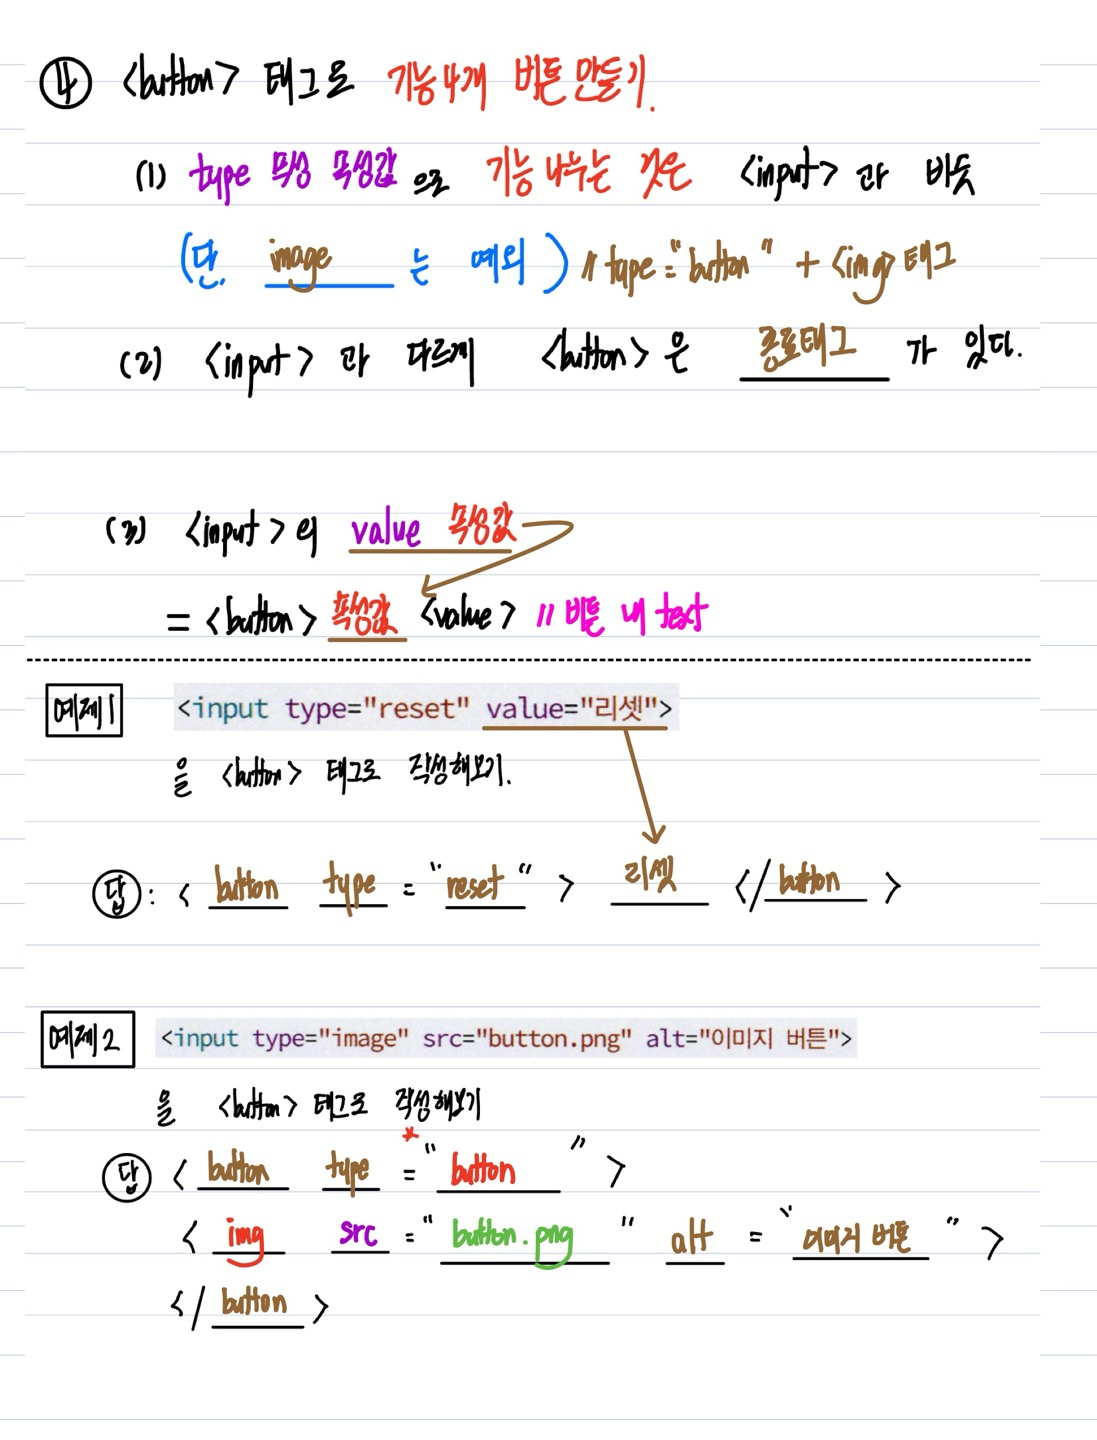 ④ <button> 태그로 기능4개 버튼 만들기.
(1) type 속성 속성값 으로 기능 나누는 것은 <input> 과 비슷
(단, image 는 예외) // type="button" + <img> 태그
(2) <input> 과 다르게 <button> 은 종료태그 가 있다.
(3) <input> 의 value 속성값
= <button> 속성값 <value> // 버튼 내 text
예제1 <input type="reset" value="리셋">
을 <button> 태그로 작성해보기.
답 : < button type = "reset" > 리셋 </ button >
예제2 <input type="image" src="button.png" alt="이미지 버튼">
을 <button> 태그로 작성해보기
답 < button type *= "button" >
< img src = "button.png" alt = "이미지 버튼" >
</ button >